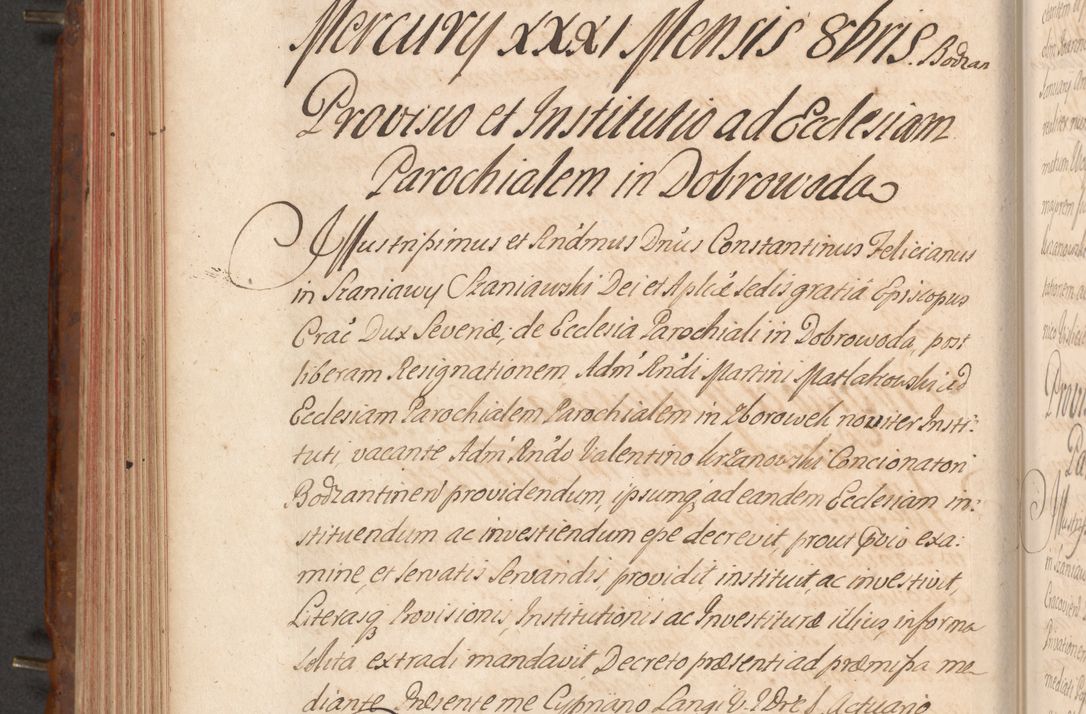 Mercurÿ XXXI Mensis 8bris. Bodzan
Provisio et Institutio ad Ecclesiam
Parochialem in Dobrowoda
Illustrissimus et Rndmus Dnus Constantinus Felicianus
in Szaniawy Szaniawski Dei et Aplicæ sedis gratiâ Episcopus
Crac̃ Dux Severiæ, de Ecclesia Parochiali in Dobrowoda, post
liberam Resignationem Adm̃ Rndi Martini Matlakowski ad
Ecclesiam Parochialem Parochialem in Zborowek noviter Insti:
tuti, vacante Adm̃ Rndo Valentino Urzanowski Concionatori
Bodzantinen̄ providendum, ipsumq; ad eandem Ecclesiam in:
stituendum ac investiendum esse decrevit, prout prvio exa:
mine, et servatis servandis providit instituit, ac investivit,
Literasq; Provisionis, Institutionis ac Investituræ illius, in forma
solita extradi mandavit, Decreto præsenti ad præmissa me
diante. Præsente me Cypriano Langi V. I. Dre S. Actuario